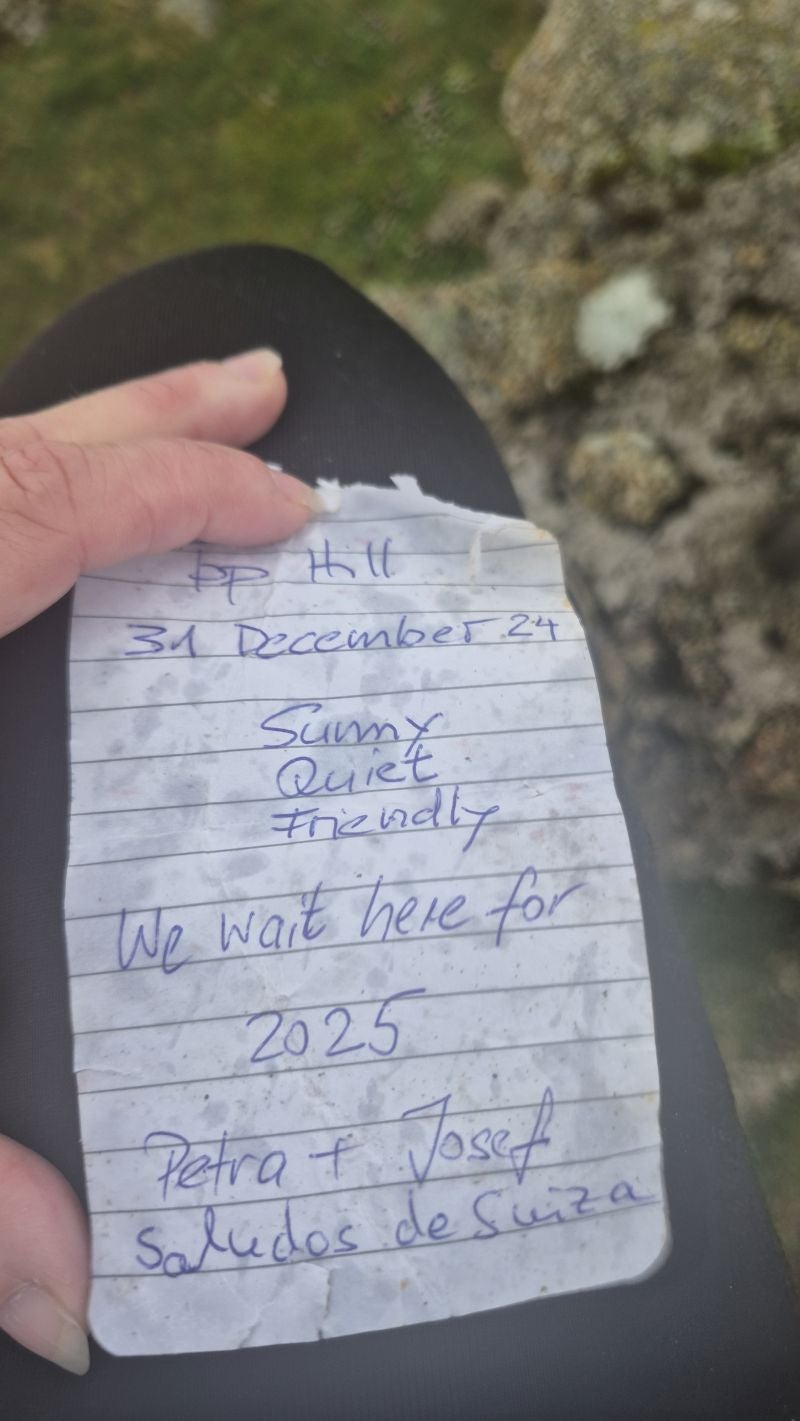 top Hill
31 December 24
Sunny
Quiet
Friendly
We wait here for
2025
Petra + Josef
Saludos de Suiza